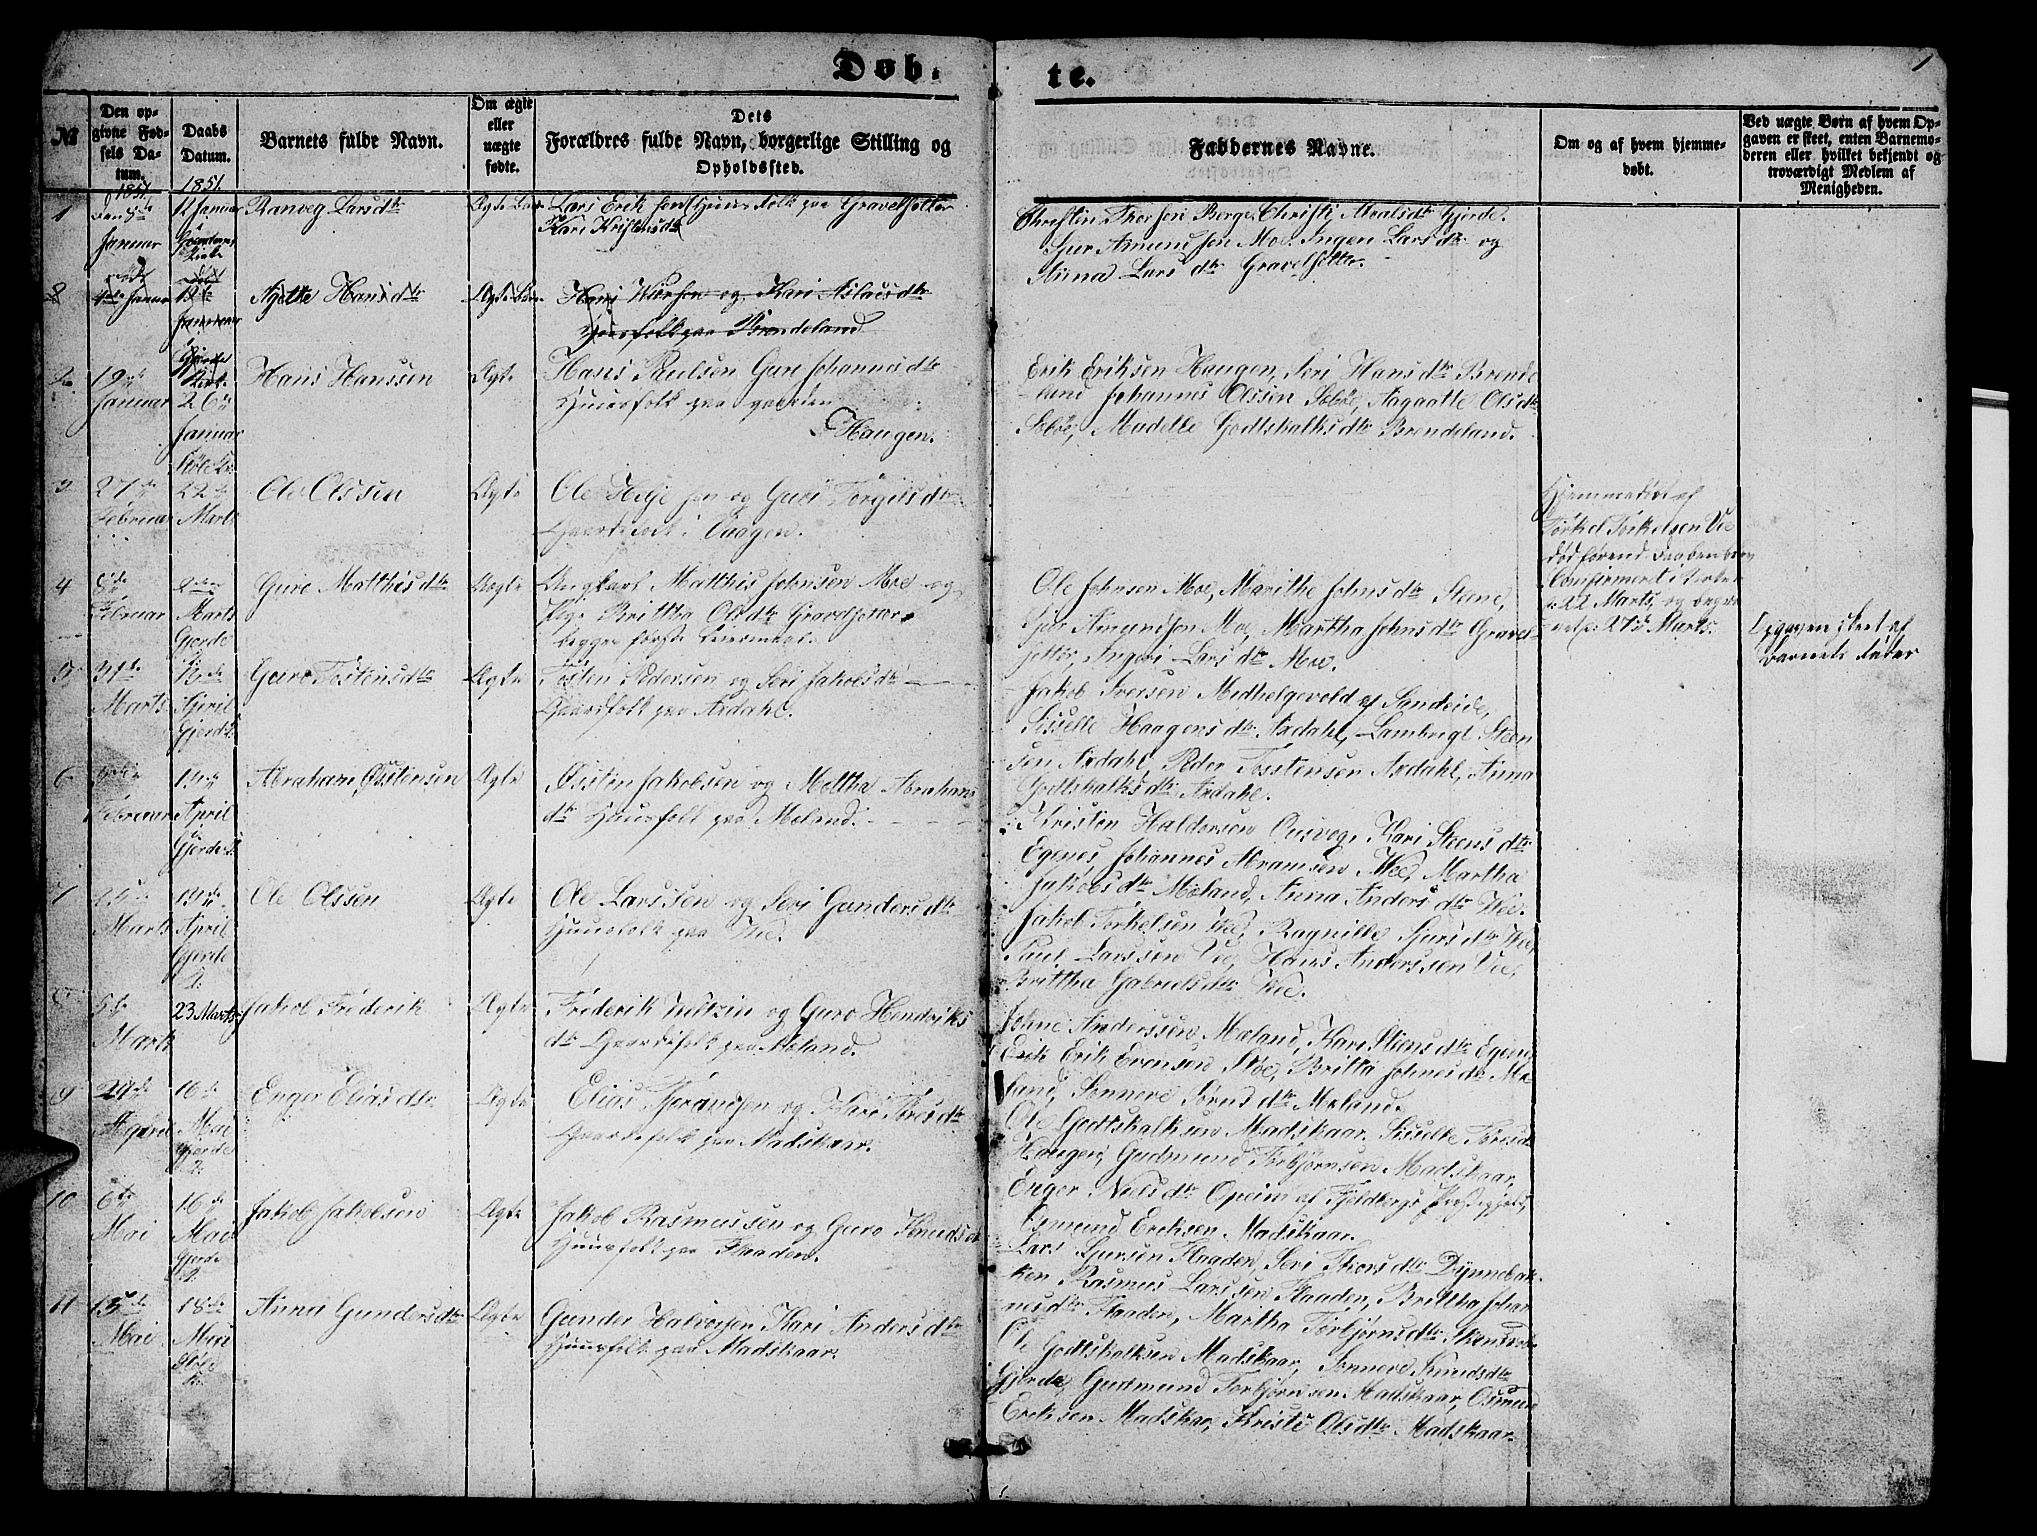 Døb-
te.
1
No
Den op-
givne Fød-
sels Da-
tum.
1851
Daabs
Datum.
1851.
Barnets fulde Navn.
Om ægte
eller
uægte
fødte.
Dets
Forældres fulde Navn, borgerlige Stilling og
Opholdssted.
Faddernes Navne.
Om og af hvem hjemme-
døbt.
Ved uægte Børn af hvem Op-
gaven er skeet, enten Barnemo-
deren eller hvilket bekjendt og
troværdigt Medlem af
Menigheden.
1
Januar
12 Januar
Ranveg Larsdtr
Ægte
Lars Erik sen Huusfolk paa Gravelsetter
Kari Kristensdtr
Christen Thorsen Berge, Christi Gjerde.
Sjur Amundsen Moe. Ingen Larsdtr og
Anna Larsdtr Gravelsetter.
Januar
Hansdtr
Ægte
Hans og Kari Aslacsdtr
Huusfolk paa Brendeland
2
19de
Januar
26
Januar
Hans Hanssen
Ægte
Hans Paulsen Guri Johannesdtr
Huusfolk paa gaarden
Haugen.
Erik Eriksen Haugen, Seri Hansdtr Brende
land Johannes Olssen Sebøe, Aagaatte Olsdtr
Sebøe, Madelle Godtskalksdtr Brendeland.
3
27de
Februar
22de
Marts
Ole Olssen
Ægte
Ole Helje sen og Guri Torgilsdtr
Gaardsfolk i Vaagen.
Hjemmedøbt af
Tørkel Tørkelsen Vee
død førend
Confirmeret
22 Marts, og
27de Marts.
4
8de
Februar
Marts
Gjerde
Guro Matthisdtr
Uægte
Ungkarl Matthis Johnsen Moe og
Pige Brittha Olsdtr Gravelsetter
begges første Leiermaal.
Ole Johnsen Moe, Marithe Johnsdtr Steene,
Sjur Amundsen Moe, Martha Johnsdtr Gravel-
setter, Ingeri Larsdtr Moe.
Opgaven skeet af
Barnets Fader
5
Marts
April
Gjerde
Guro Tostensdtr
Ægte
Tosten Pedersen og Seri Jakobsdtr
Gaardfolk paa Axdahl.
Jakob Iversen Midthelgevold af Sandeide,
Sisselle Haagensdtr Axdahl, Lambrigt Steen
sen Axdahl, Peder Tosstensen Axdahl, Anna
Godtskalksdtr Axdahl.
6
Februar
13de
April
Gjerde
Abraham Østensen
Ægte
Østen Jakobsen og Meltha Abrahams
dtr Huusfolk paa Moland.
Kristen Haldorsen Ousvog, Kari Steensdtr
Egenes, Johannes Abramsen Wee, Martha
Jakobsdtr Moland, Anna Andersdtr Wee.
7
Marts
13de
April
Gjerde
Ole Olssen
Ægte
Ole Larssen og Seri Gundersdtr
Huusfolk paa Wee.
Jakob Torkelsen Wee, Ragnille Sjursdtr Wee,
Paul Larssen Vee, Hans Anderssen Vee,
Brittha Gabrielsdtr Wee.
8
5te
Marts
23 Marts
Jakob Friderik
Ægte
Friderik Jultzin og Guro Hendriks
dtr Gaardsfolk paa Moland.
Johne Anderssen Moland, Kari Stiensdtr Egen
Erik Erik Evensen Støe, Britta Johnesdtr Mo
land, Sønneve Sørnsdtr Moland.
9
16de
Mai
Gjerde
Enger Eliasdtr
Ægte
Elias Tjerandsen og Kari Toresdtr
Gaardsfolk paa Madskaar.
Ole Godtskalksen Madskaar. Sisselle Toresd
Haugen, Gudmund Torbjørnsen Madskaar,
Enger Nielsdtr Opeim af Fjeldbergs Præstegjeld,
Osmund Eriksen Madskaar.
10
6te
Mai
16de
Mai
Gjerde
Jakob Jakobsen
Ægte
Jakob Rasmussen og Guro Knudsdtr
Huusfolk paa Flaaden.
Lars Sjursen Flaaden, Seri Thorsdtr Dynnebak
ken Rasmus Larssen Flaaden, Brittha Johan
nesdtr Flaaden, Martha Torbjørnsdtr
11
13de
Mai
18de
Mai
Anna Gundersdtr
Ægte
Gunder Halvorsen Kari Andersdtr
Huusfolk paa Madskaar.
Ole Godtskalksen Madskaar, Sønneve Knudsdtr
Gjerde, Gudmund Torbjørnsen Madskaar, Osmund
Eriksen Madskaar, Kristi Olsdtr Madskaar.